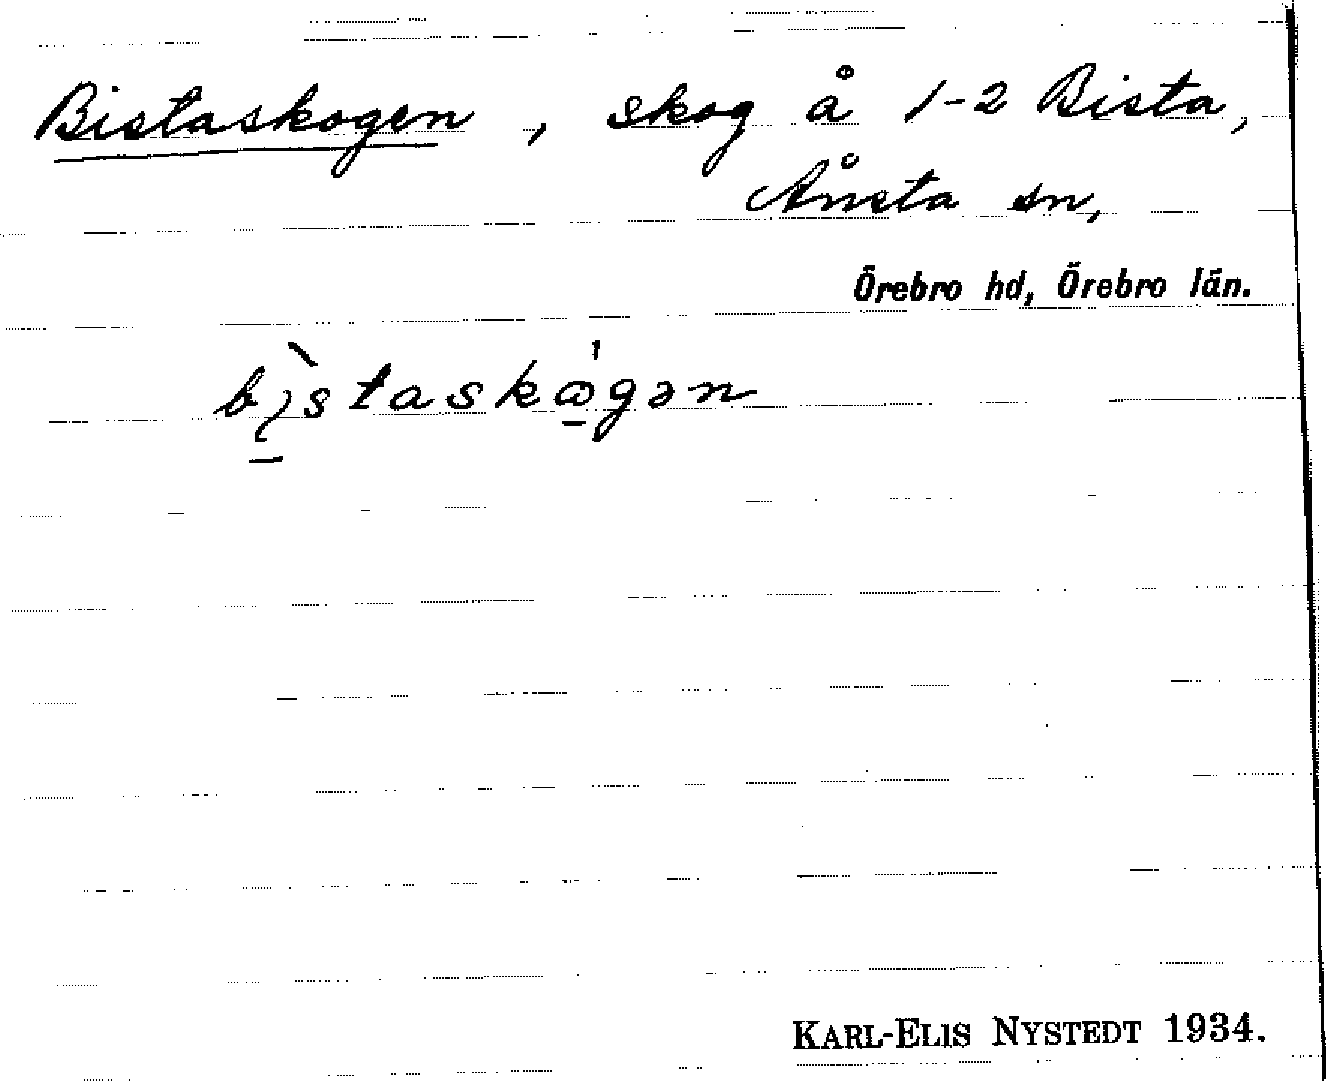 Bistaskogen, skog å 1-2 Bista,
Ånsta sn,
Örebro hd, Örebro län.
bı̀staskɷ̀gən
KARL-ELIS NYSTEDT 1934.